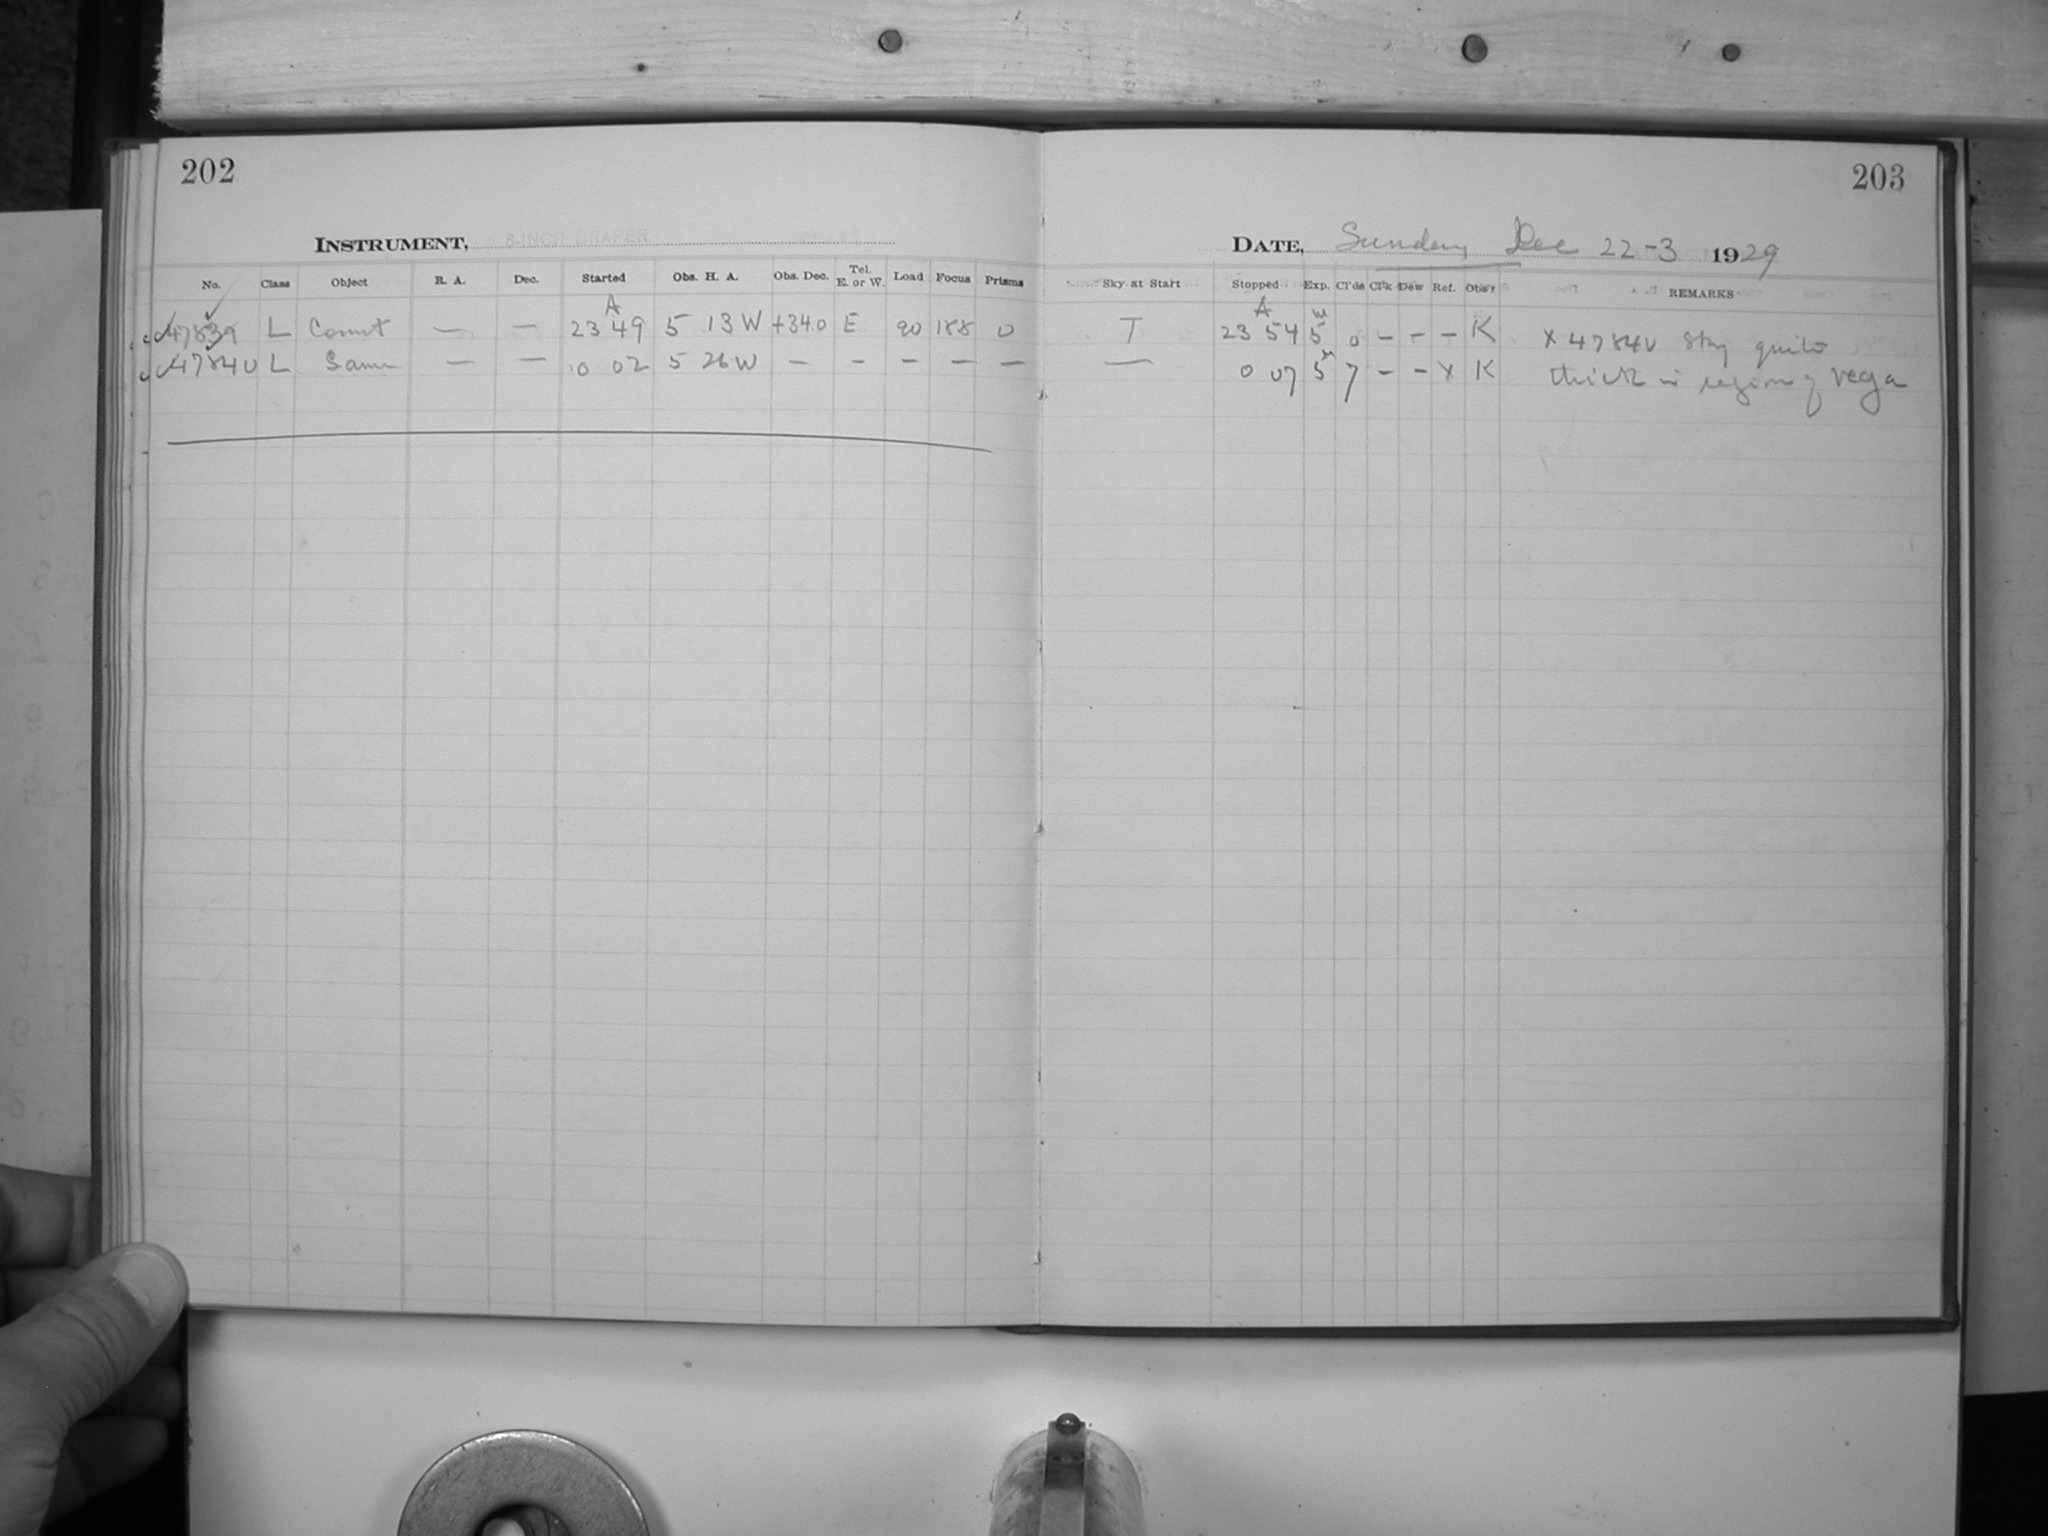 202
203
INSTRUMENT, 8-INCH DRAPER
DATE, Sunday Dec 22-3 1929
No. Class Object R. A. Dec. Started Obs. H. A. Obs. Dec. Tel. E. or W. Load Focus Prisms Sky at Start Stopped Exp. Cl'ds Cl'k Dew Ref. Obs'r REMARKS
A A m
47839 L Comet — — 23 49 5 13 W +34.0 E 90 188 0 T 23 54 5 0 - - - K x 47840 Sky quite
47840 L Same — — 0 02 5 26 W — — — — — — 0 07 5 m 7 - - x K thick in region of Vega